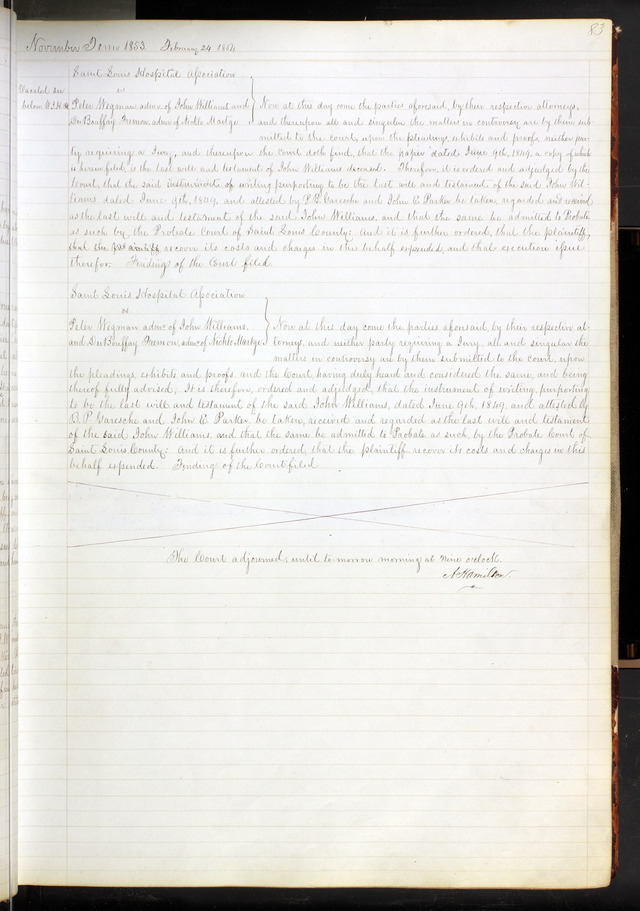 83
November Term 1853. February 24. 1854
Saint Louis Hospital Association
vs
Vacated see
below
Peter Wegman admr. of John Williams and
DuBouffay Fremon, admr. of
Now at this day come the parties aforesaid, by their respective attorneys,
and thereupon all and singular the matters in controversy are by them sub-
mitted to the court, upon the pleadings, exhibits and proofs, neither par-
ty requiring a Jury, and thereupon the Court doth find, that the paper dated June 9th, 1849, a copy of which
is herein filed, is the last will and testament of John Williams deceased. Therefore, it is ordered and adjudged by the
Court, that the said instrument of writing purporting to be the last will and testament of the said John Wil-
liams dated June 9th, 1849, and attested by P. B. Garesche and John C. Parker be taken, regarded and received
as the last will and testament of the said John Williams, and that the same be admitted to Probate
as such by the Probate Court of Saint Louis County: And it is further ordered, that the plaintiff,
that the plaintiff recover its costs and charges in the behalf expended, and that execution issue
therefor. Finding of the Court filed.
Saint Louis Hospital Association
vs
Peter Wegman admr. of John Williams.
and DuBouffay Fremon, admr. of
Now at this day come the parties aforesaid, by their respective at-
torneys, and neither party requiring a Jury, all and singular the
matters in controversy are by them submitted to the court, upon
the pleadings, exhibits and proofs, and the Court having duly heard and considered the same, and being
thereof fully advised; It is therefore, ordered and adjudged, that the instrument of writing, purporting
to be the last will and testament of the said John Williams, dated June 9th, 1849, and attested by
B. P. Garesche and John C. Parker be taken, received and regarded as the last will and testament
of the said John Williams, and that the same be admitted to Probate as such, by the Probate Court of
Saint Louis County: And it is further ordered, that the plaintiff recover its costs and charges in this
behalf expended. Finding of the Court filed
The Court adjourned, until to-morrow morning at nine o'clock.
A. Hamilton